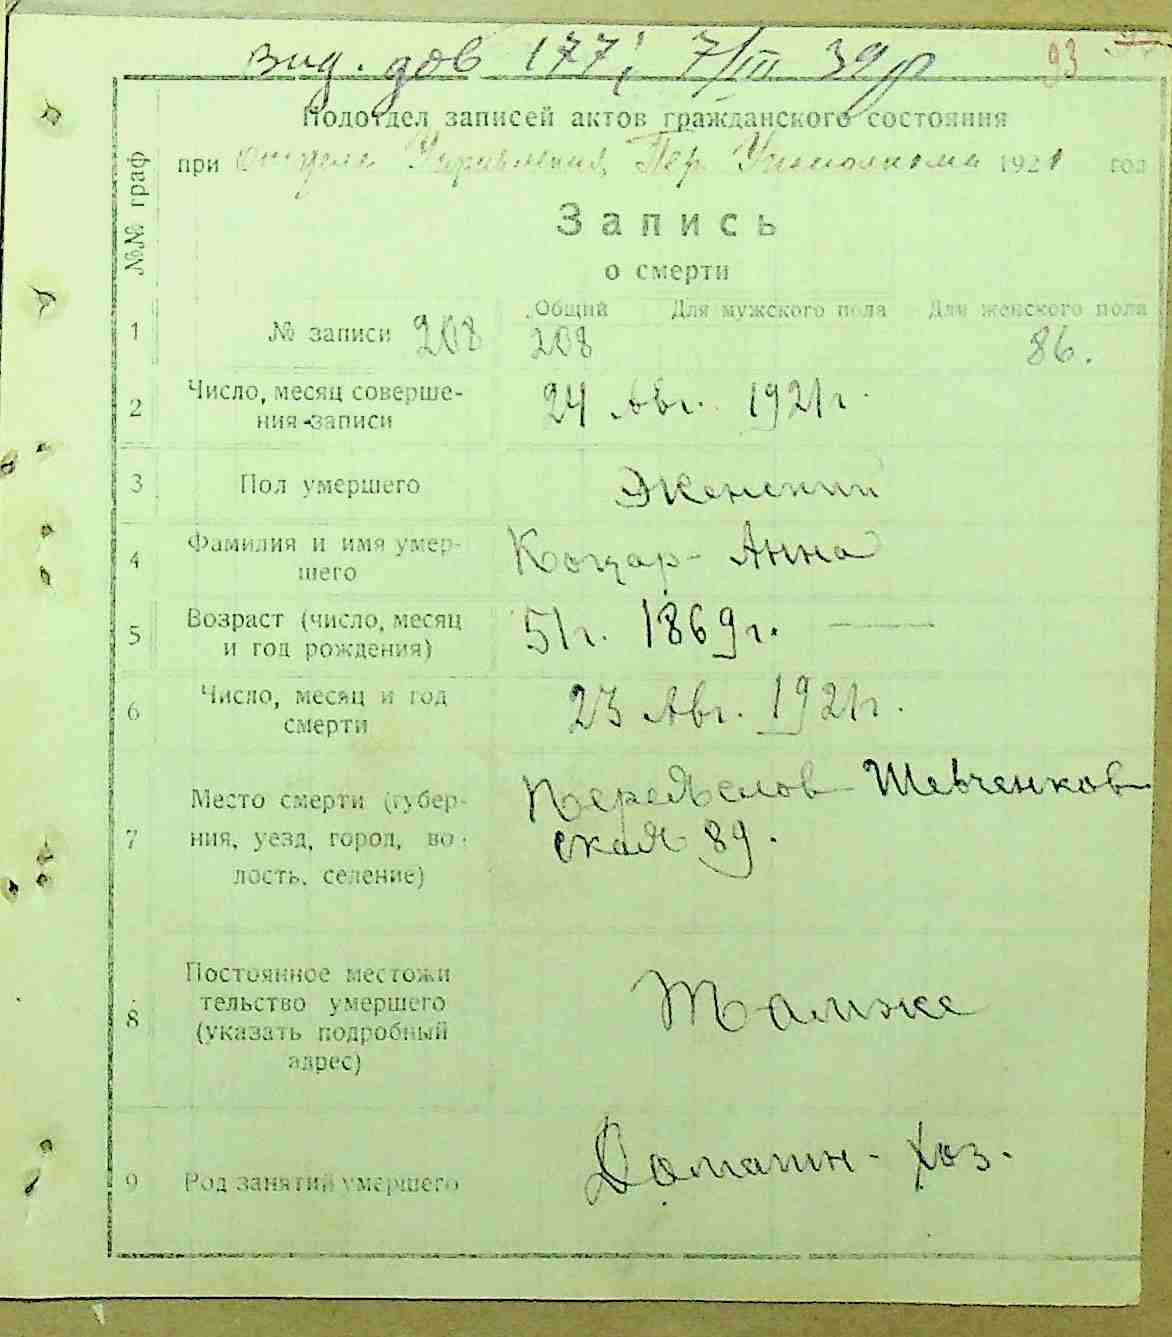 вид. дов 177; 7/III 39р
93
Подотдел записей актов гражданского состояния
при отделе Управления Пер. Уисполкома 1921 год
№№ граф
Запись
о смерти
Общий Для мужского пола Для женского пола
1 № записи 208 208 86.
2 Число, месяц соверше- 24 Авг. 1921 г.
ния записи
3 Пол умершего Женский
4 Фамилия и имя умер- Коцар Анна
шего
5 Возраст (число, месяц 51 г. 1869 г. —
и год рождения)
6 Число, месяц и год 23 Авг. 1921 г.
смерти
Переяслов Шевченков
7 Место смерти (губер-
ния, уезд, город, во- ская 89.
лость, селение)
8 Постоянное местожи
тельство умершего Тамже
(указать подробный
адрес)
9 Род занятий умершего Домашн. хоз.